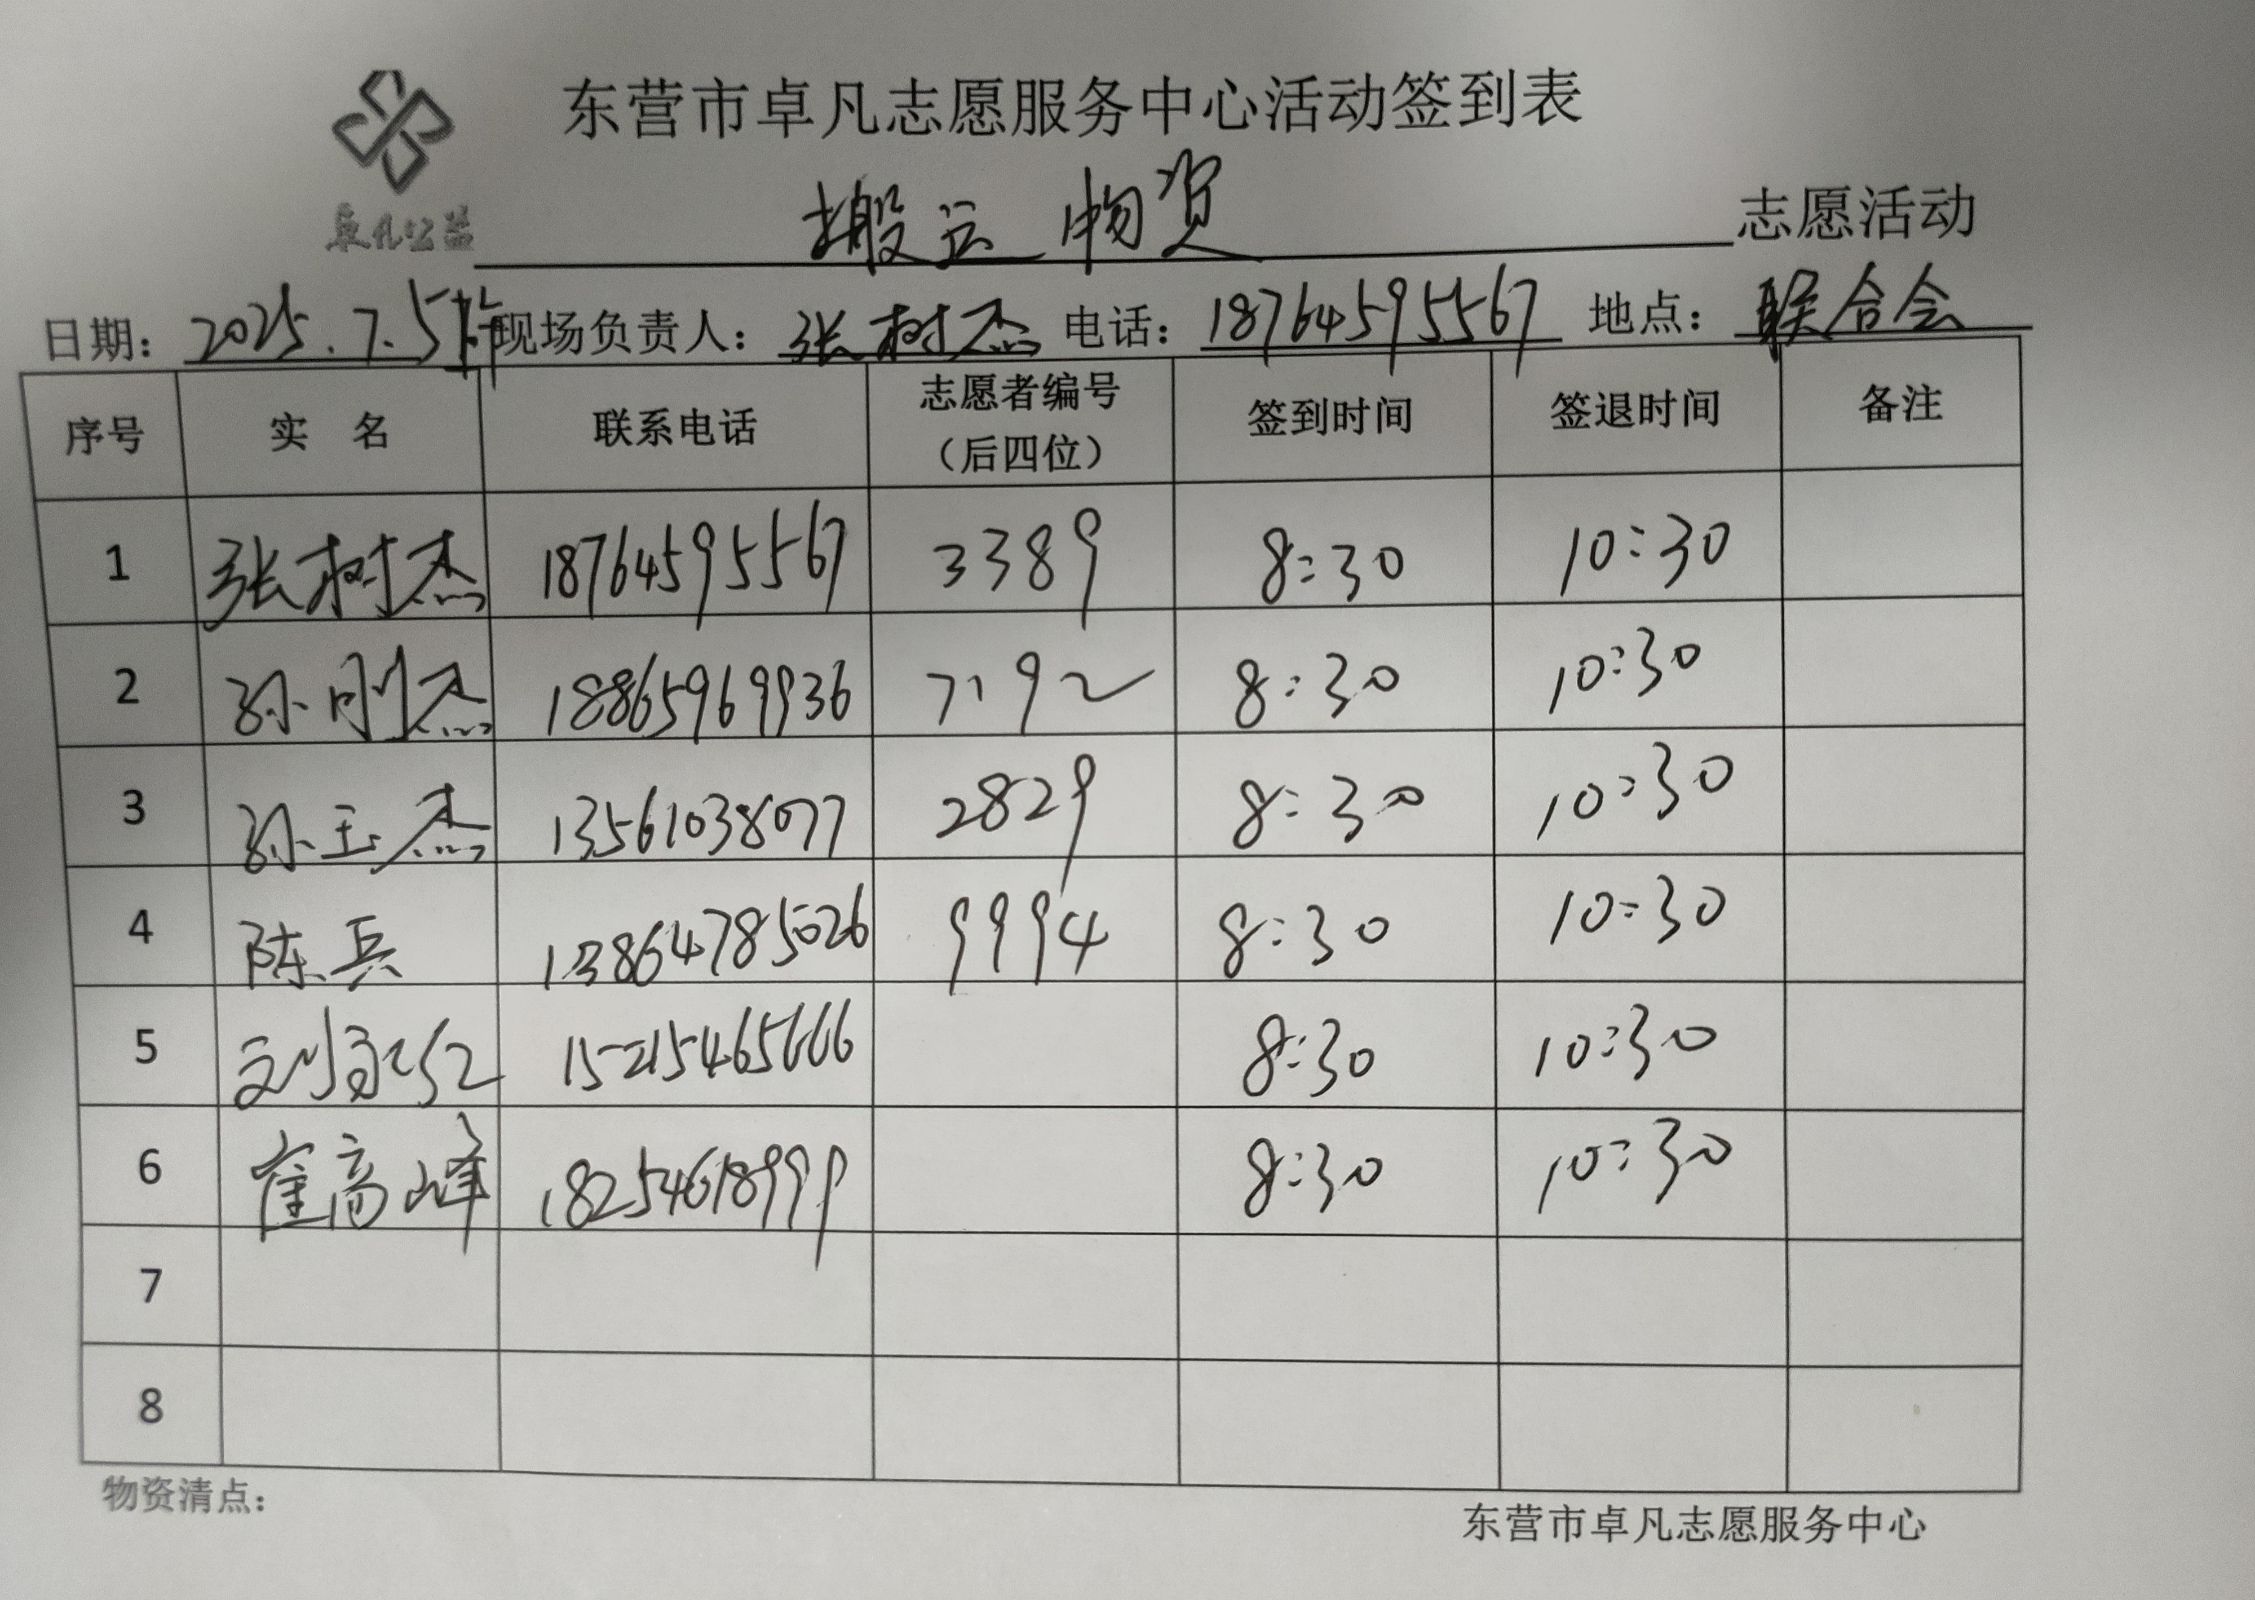 东营市卓凡志愿服务中心活动签到表
卓凡公益
搬运物资 志愿活动
日期：2025.7.5 现场负责人：张树杰 电话：18764595567 地点：联合会
序号 实 名 联系电话 志愿者编号（后四位） 签到时间 签退时间 备注
1 张树杰 18764595567 3389 8:30 10:30
2 孙刚杰 18865969936 7192 8:30 10:30
3 孙玉杰 13561038077 2829 8:30 10:30
4 陈兵 13864785026 9994 8:30 10:30
5 15215465666 8:30 10:30
6 崔高峰 18254618999 8:30 10:30
7
8
物资清点：
东营市卓凡志愿服务中心